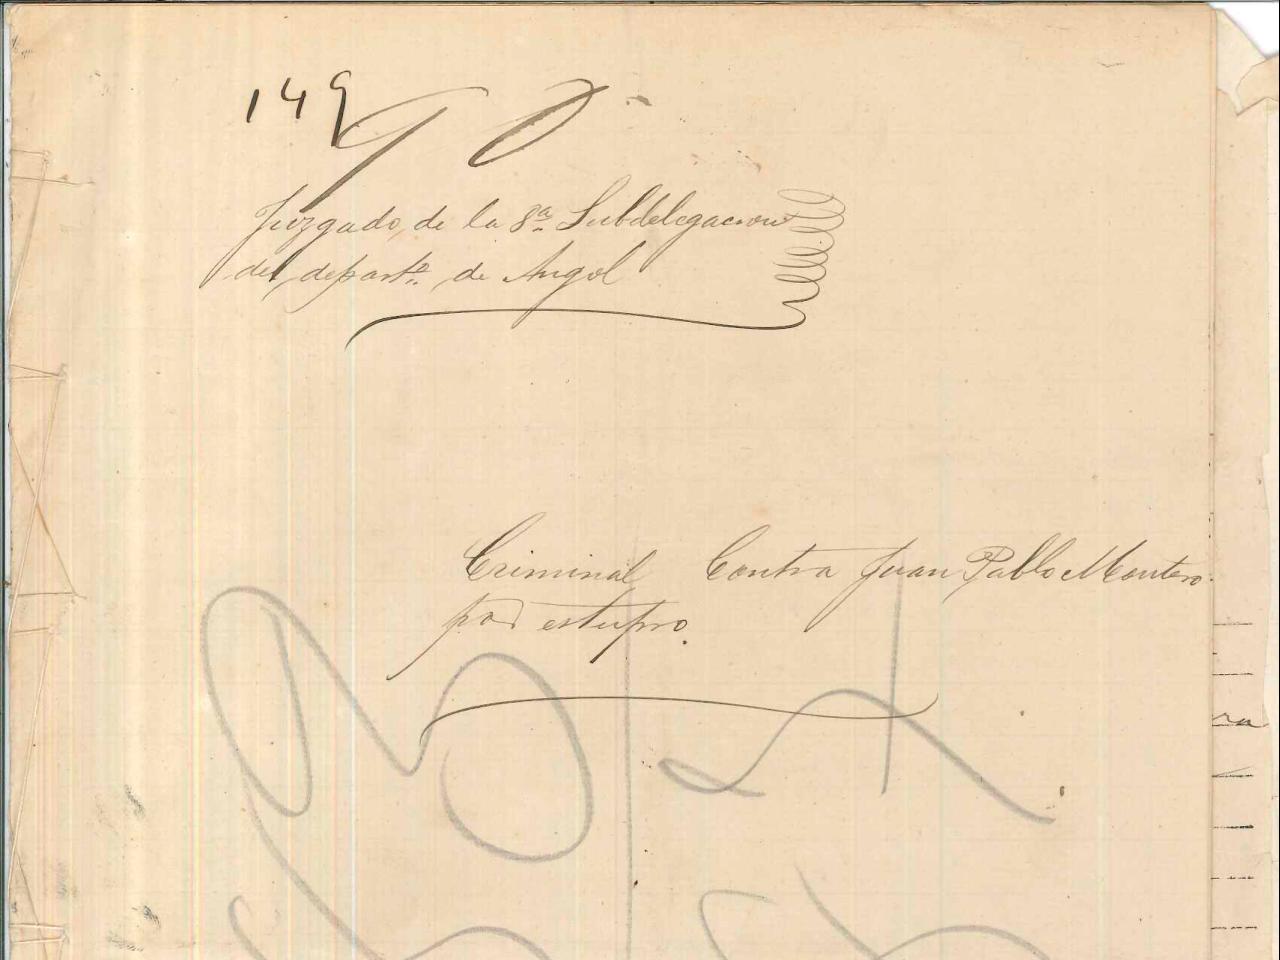 149
Juzgado de la 8ª Subdelegacion
del departº de Angol
Criminal Contra Juan Pablo Montero
por estupro.
ra